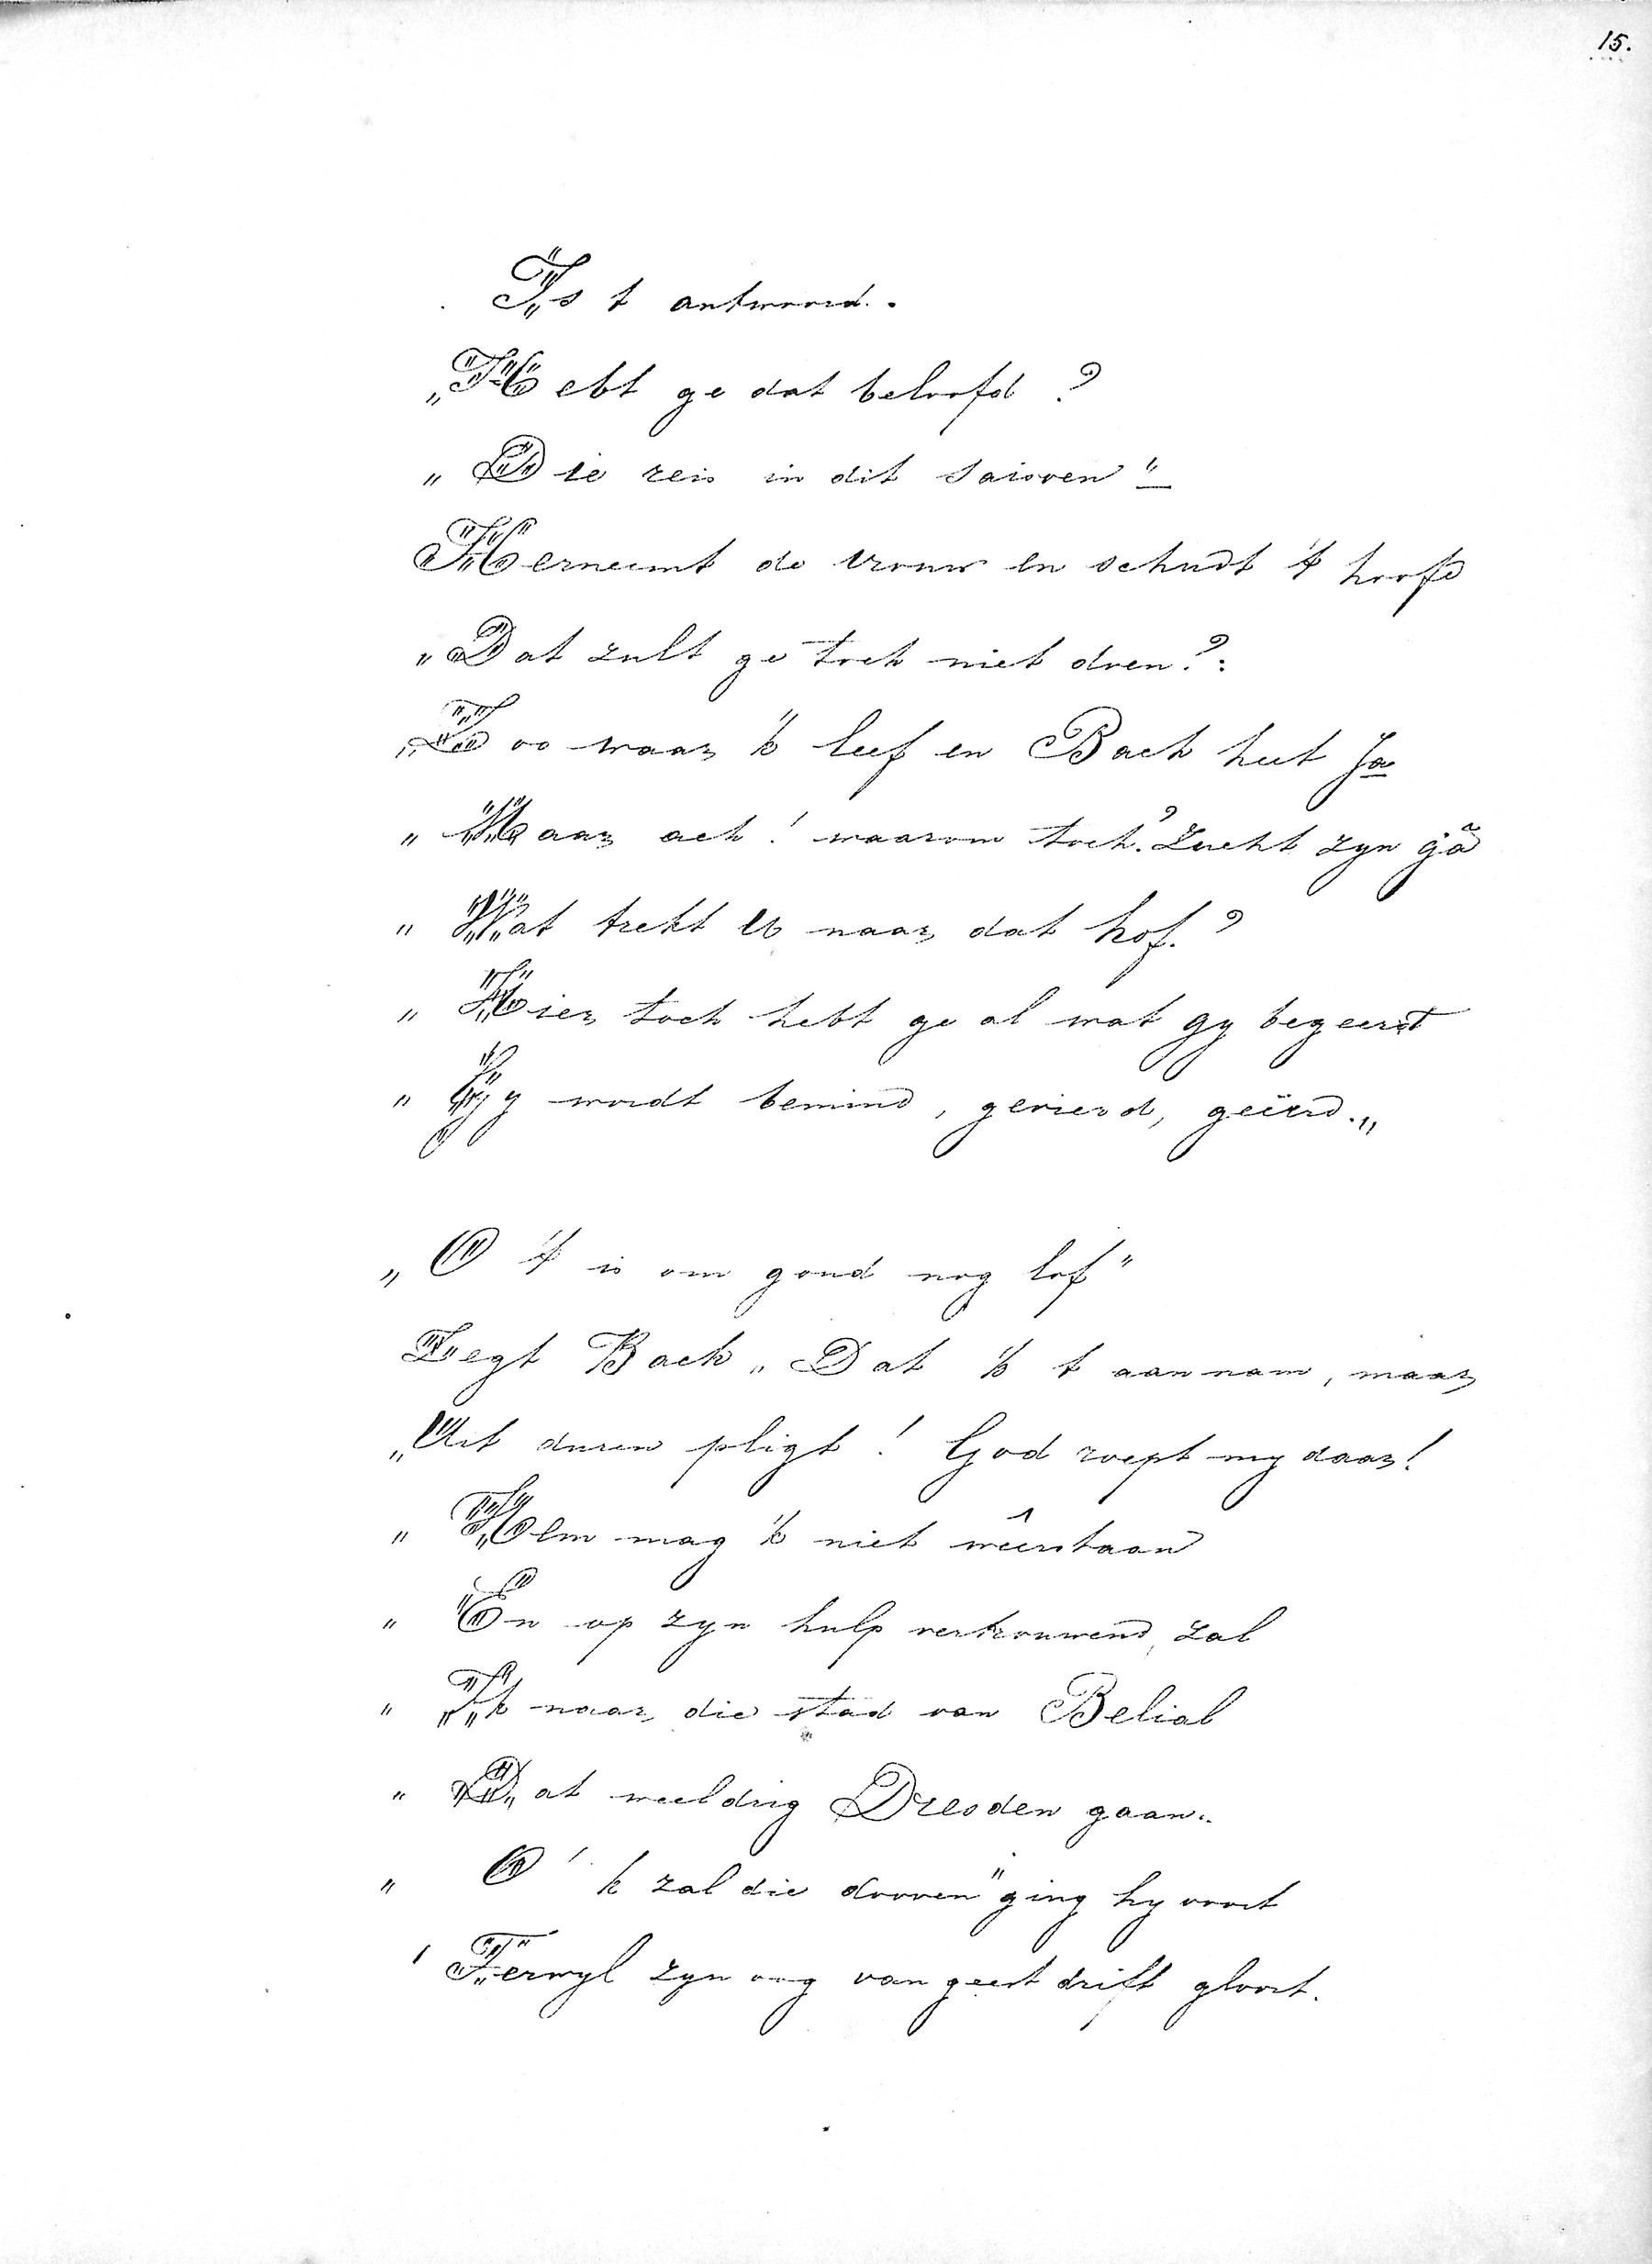 15.
Is t antwoord.
„Hebt ge dat beloofd ?
„ Die reis in dit saisoen"
Herneemt de vrouw en schudt 't hoofd
„Dat zult ge toch niet doen?.
„Zoo waar 'k leef en Bach heet Ja
„ Maar ach ! waarom toch? Zucht zyn gâ
„ Wat trekt U naar dat hof. ?
„ Hier toch hebt ge al wat gy begeert
„ Gy wordt bemind, gevierd, geëerd.„
„O 't is om goud nog lof"
Zegt Bach „ Dat 'k t aannam, maar
„Uit duren pligt ! God roept my daar!
„ Hem mag 'k niet wêerstaan
„ En op zyn hulp vertrouwend, zal
„ Ik naar die stad van Belial
„ Dat weeldrig Dresden gaan.
„ O 'k zal die dooven" ging hy voort
' Terwyl zyn oog van geestdrift gloort.